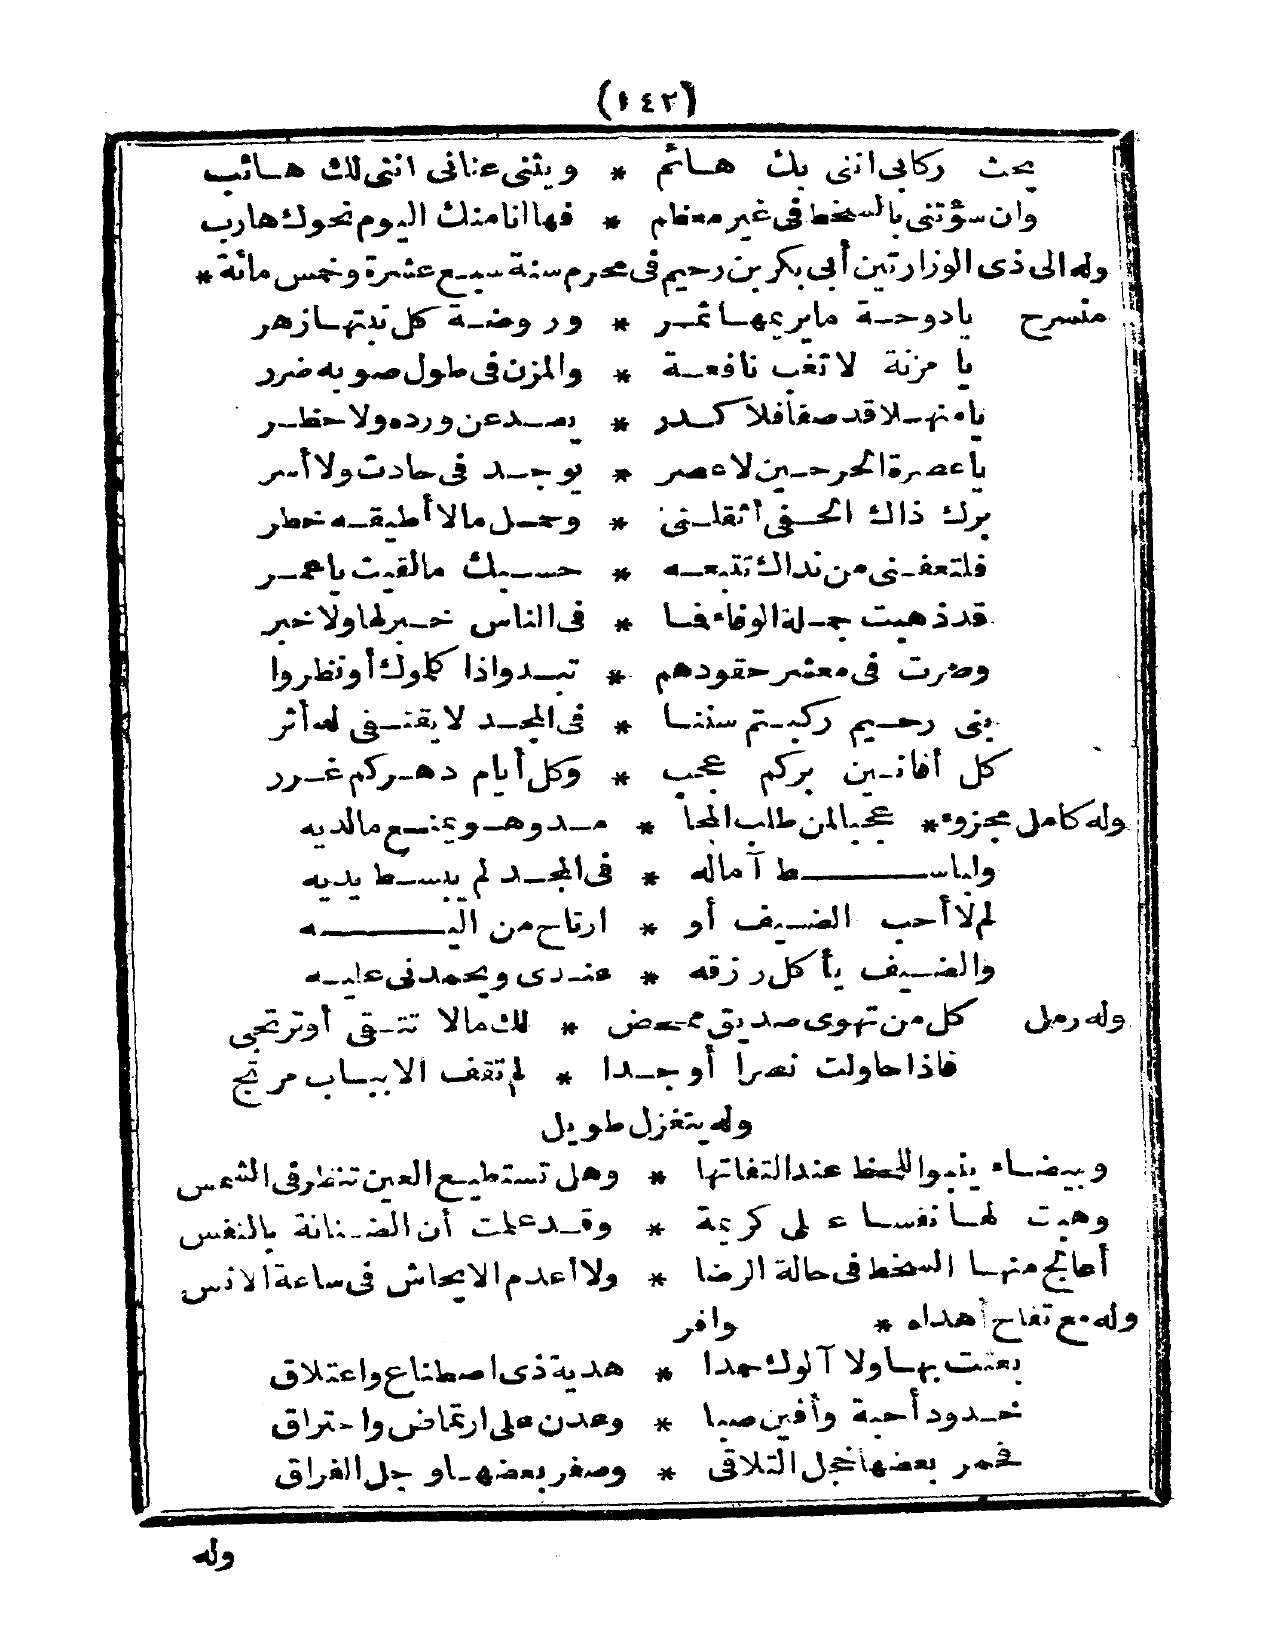 (١٤٢)
يحث ركابى اننى بك هائم * ويثنى عنانى اننى لك هائب
وان سؤتنى بالسخط فى غير معظم * فها انا منك اليوم نحوك هارب
وله الى ذى الوزارتين أبى بكر بن رحيم فى محرم سنة سبع عشرة وخمس مائة *
منسرح يا دوحة ما يريمها ثمر * وروضة كل نبتها زهر
يا مزنة لا تغب نافعة * والمزن فى طول صوبه ضرر
يا منهلا قد صفا فلا كدر * يصد عن ورده ولا خطر
يا عصرة الحر حين لا عصر * يوجد فى حادث ولا أسر
برك ذاك الحفى أثقلنى * وحمل ما لا أطيقه خطر
فلتعفنى من نداك تتبعه * حسبك ما لقيت يا عمر
قد ذهبت جملة الوفاء فما * فى الناس خبر لها ولا خبر
وصرت فى معشر حقودهم * تبدو اذا كلموك أو نظروا
بنى رحيم ركبتم سننا * فى المجد لا يقتفى له أثر
كل أفانين بركم عجب * وكل أيام دهركم غرر
وله كامل مجزوء * عجبا لمن طلب المحا * مد وهو يمنع ما لديه
ولباسط آماله * فى المجد لم يبسط يديه
لم لا أحب الضيف أو * ارتاح من اليه
والضيف يأكل رزقه * عندى ويحمدنى عليه
وله رمل كل من تهوى صديق ممحض * لك ما لا تتقى أو ترتجى
فاذا حاولت نصرا أو جدا * لم تقف الا بباب مرتج
وله يتغزل طويل
وبيضاء ينبو اللحظ عند التفاتها * وهل تستطيع العين تنظر فى الشمس
وهبت لها نفسا على كريمة * وقد علمت أن الضنانة بالنفس
أعالج منها السخط فى حالة الرضا * ولا أعدم الايحاش فى ساعة الانس
وله مع تفاح أهداه * وافر
بعثت بها ولا آلوك حمدا * هدية ذى اصطناع واعتلاق
خدود أحبة وأفين صبا * وعدن على ارتماض واحتراق
فحمر بعضها خجل التلاقى * وصفر بعضها وجل الفراق
وله